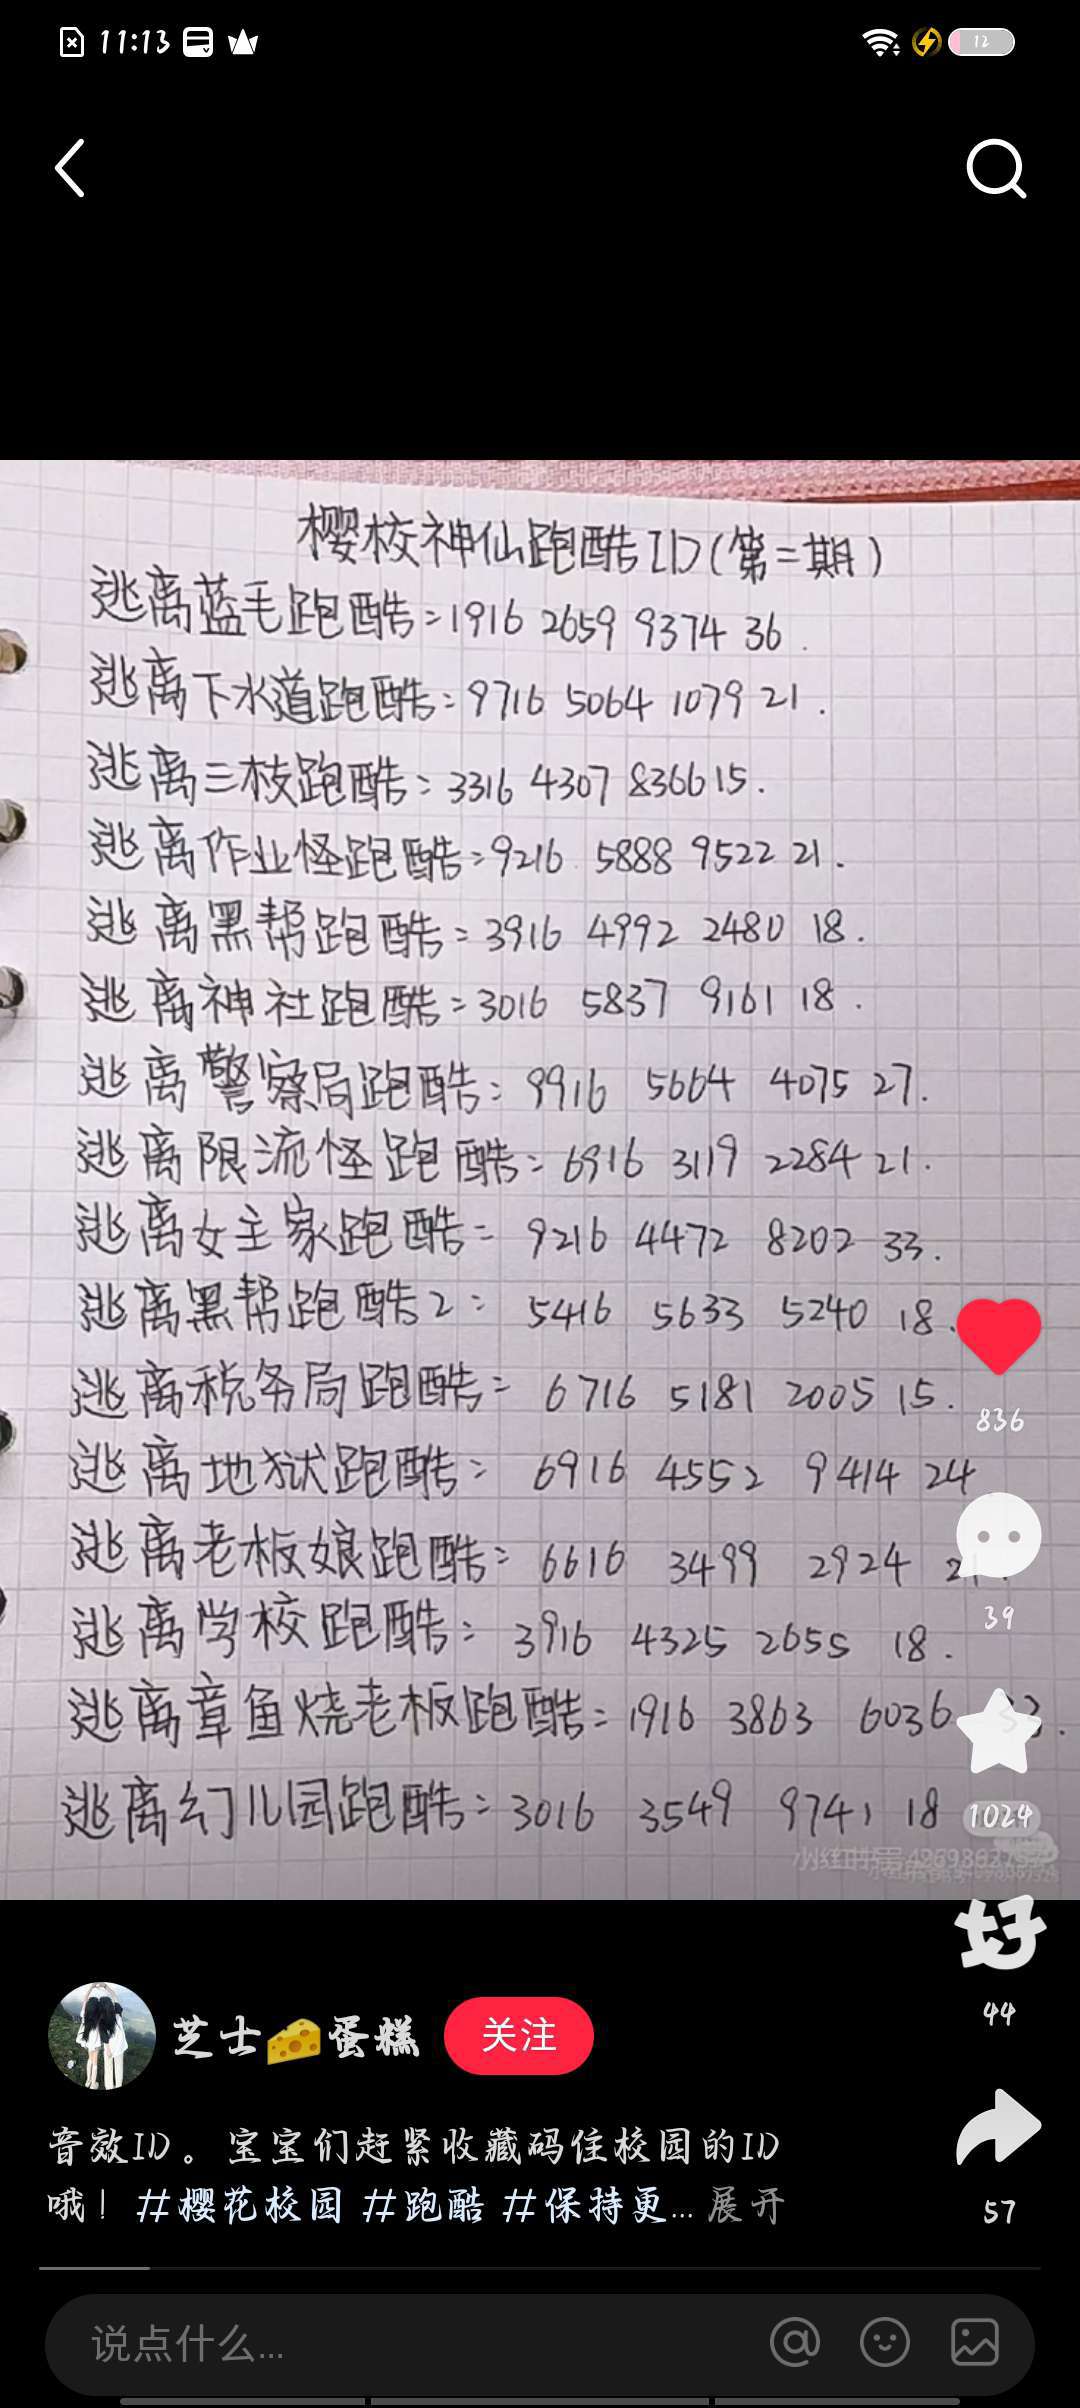 11:13
12
樱校神仙跑酷ID(第二期)
逃离蓝毛跑酷:1916 2659 9374 36.
逃离下水道跑酷:9716 5064 1079 21.
逃离三枝跑酷:3316 4307 8366 15.
逃离作业怪跑酷:9216 5888 9522 21.
逃离黑帮跑酷:3916 4992 2480 18.
逃离神社跑酷:3016 5837 9161 18.
逃离警察局跑酷:9916 5664 4075 27.
逃离限流怪跑酷:6916 3119 2284 21.
逃离女主家跑酷:9216 4472 8202 33.
逃离黑帮跑酷2:5416 5633 5240 18.
逃离税务局跑酷:6716 5181 2005 15.
逃离地狱跑酷:6916 4552 9414 24
逃离老板娘跑酷:6616 3499 2924 21.
逃离学校跑酷:3916 4325 2655 18.
逃离章鱼烧老板跑酷:1916 3863 6036 33.
逃离幻儿园跑酷:3016 3549 9741 18
836
39
1024
好
44
57
芝士🧀蛋糕
关注
音效ID。宝宝们赶紧收藏码住校园的ID
哦! #樱花校园 #跑酷 #保持更... 展开
说点什么...